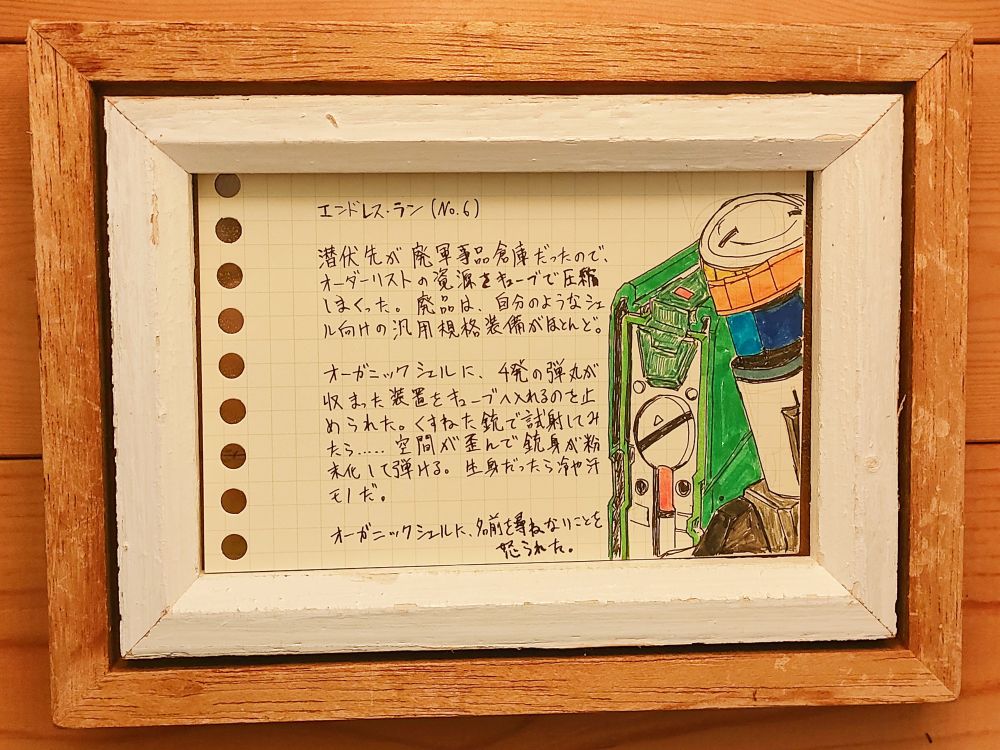 エンドレス・ラン(No.6)
潜伏先が廃軍事品倉庫だったので、
オーダーリストの資源をキューブで圧縮
しまくった。廃品は、自分のようなシェ
ル向けの汎用規格装備がほとんど。
オーガニックシェルに、4発の弾丸が
収まった装置をキューブへ入れるのを止
められた。くすねた銃で試射してみ
たら.....空間が歪んで銃身が粉
末化して弾ける。生身だったら冷や汗
モノだ。
オーガニックシェルに、名前を尋ねないことを
怒られた。